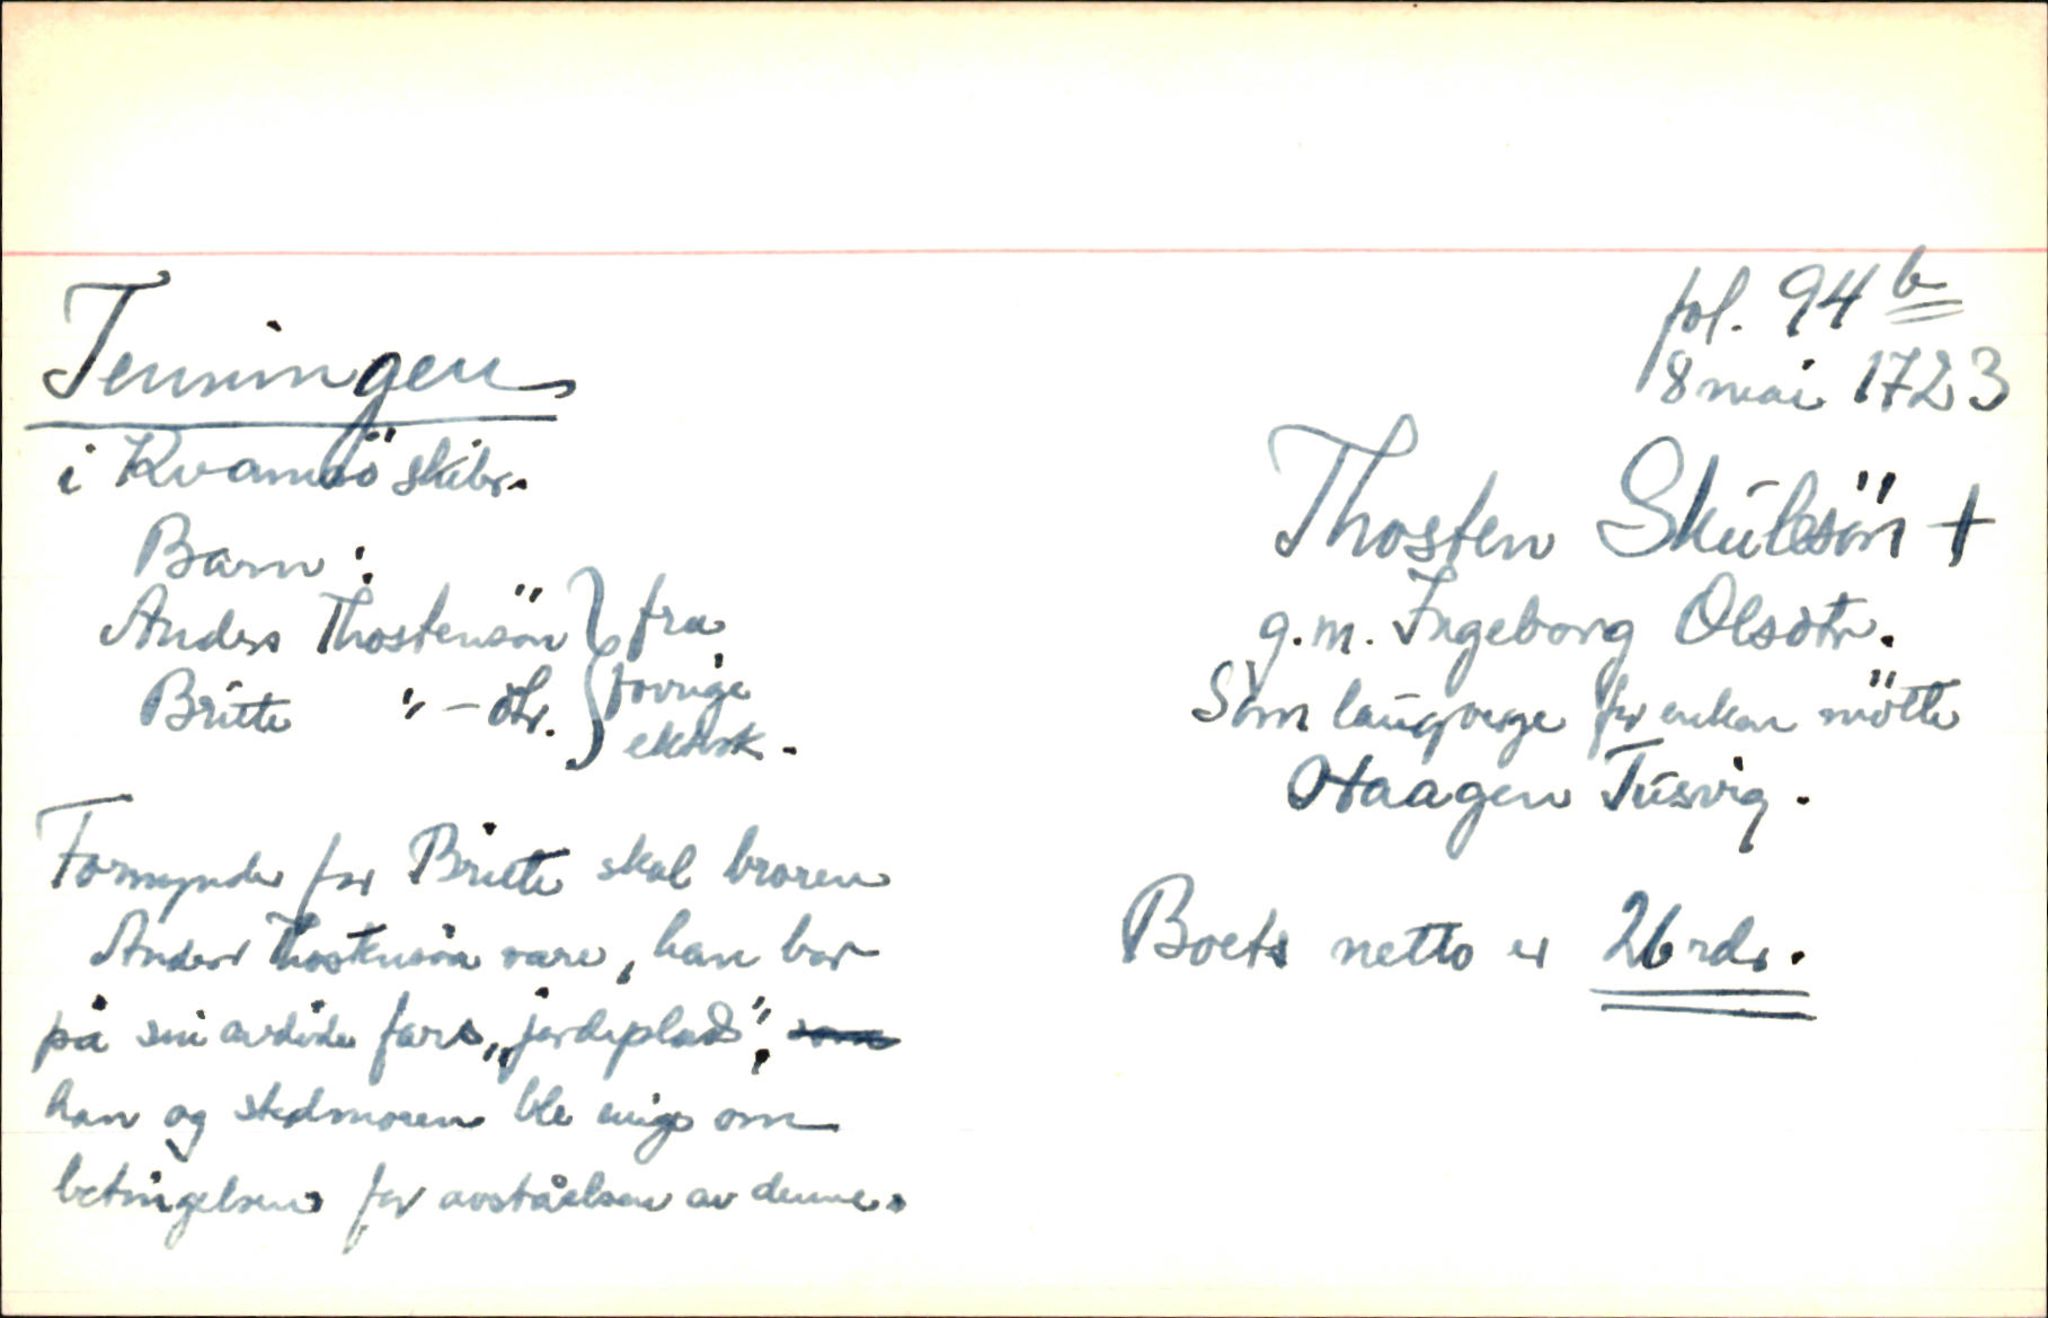 fol. 94 b
8 mai 1723
Tenningen
i Kvamsö skibr.
Barn:
Anders Thostensön } fra
Britte " - dtr. } forrige
ektesk.
Formynder for Britte skal broren
Anders Thostensön være, han bor
på sin avdöde fars „jordeplads",
han og stedmoren ble enige om
betingelsene for avståelsen av denne.
Thosten Skúlesön +
g.m. Ingeborg Olsdtr.
Som laugverge for enken mötte
Haagen Túsvig.
Boets netto er 26 rdr.